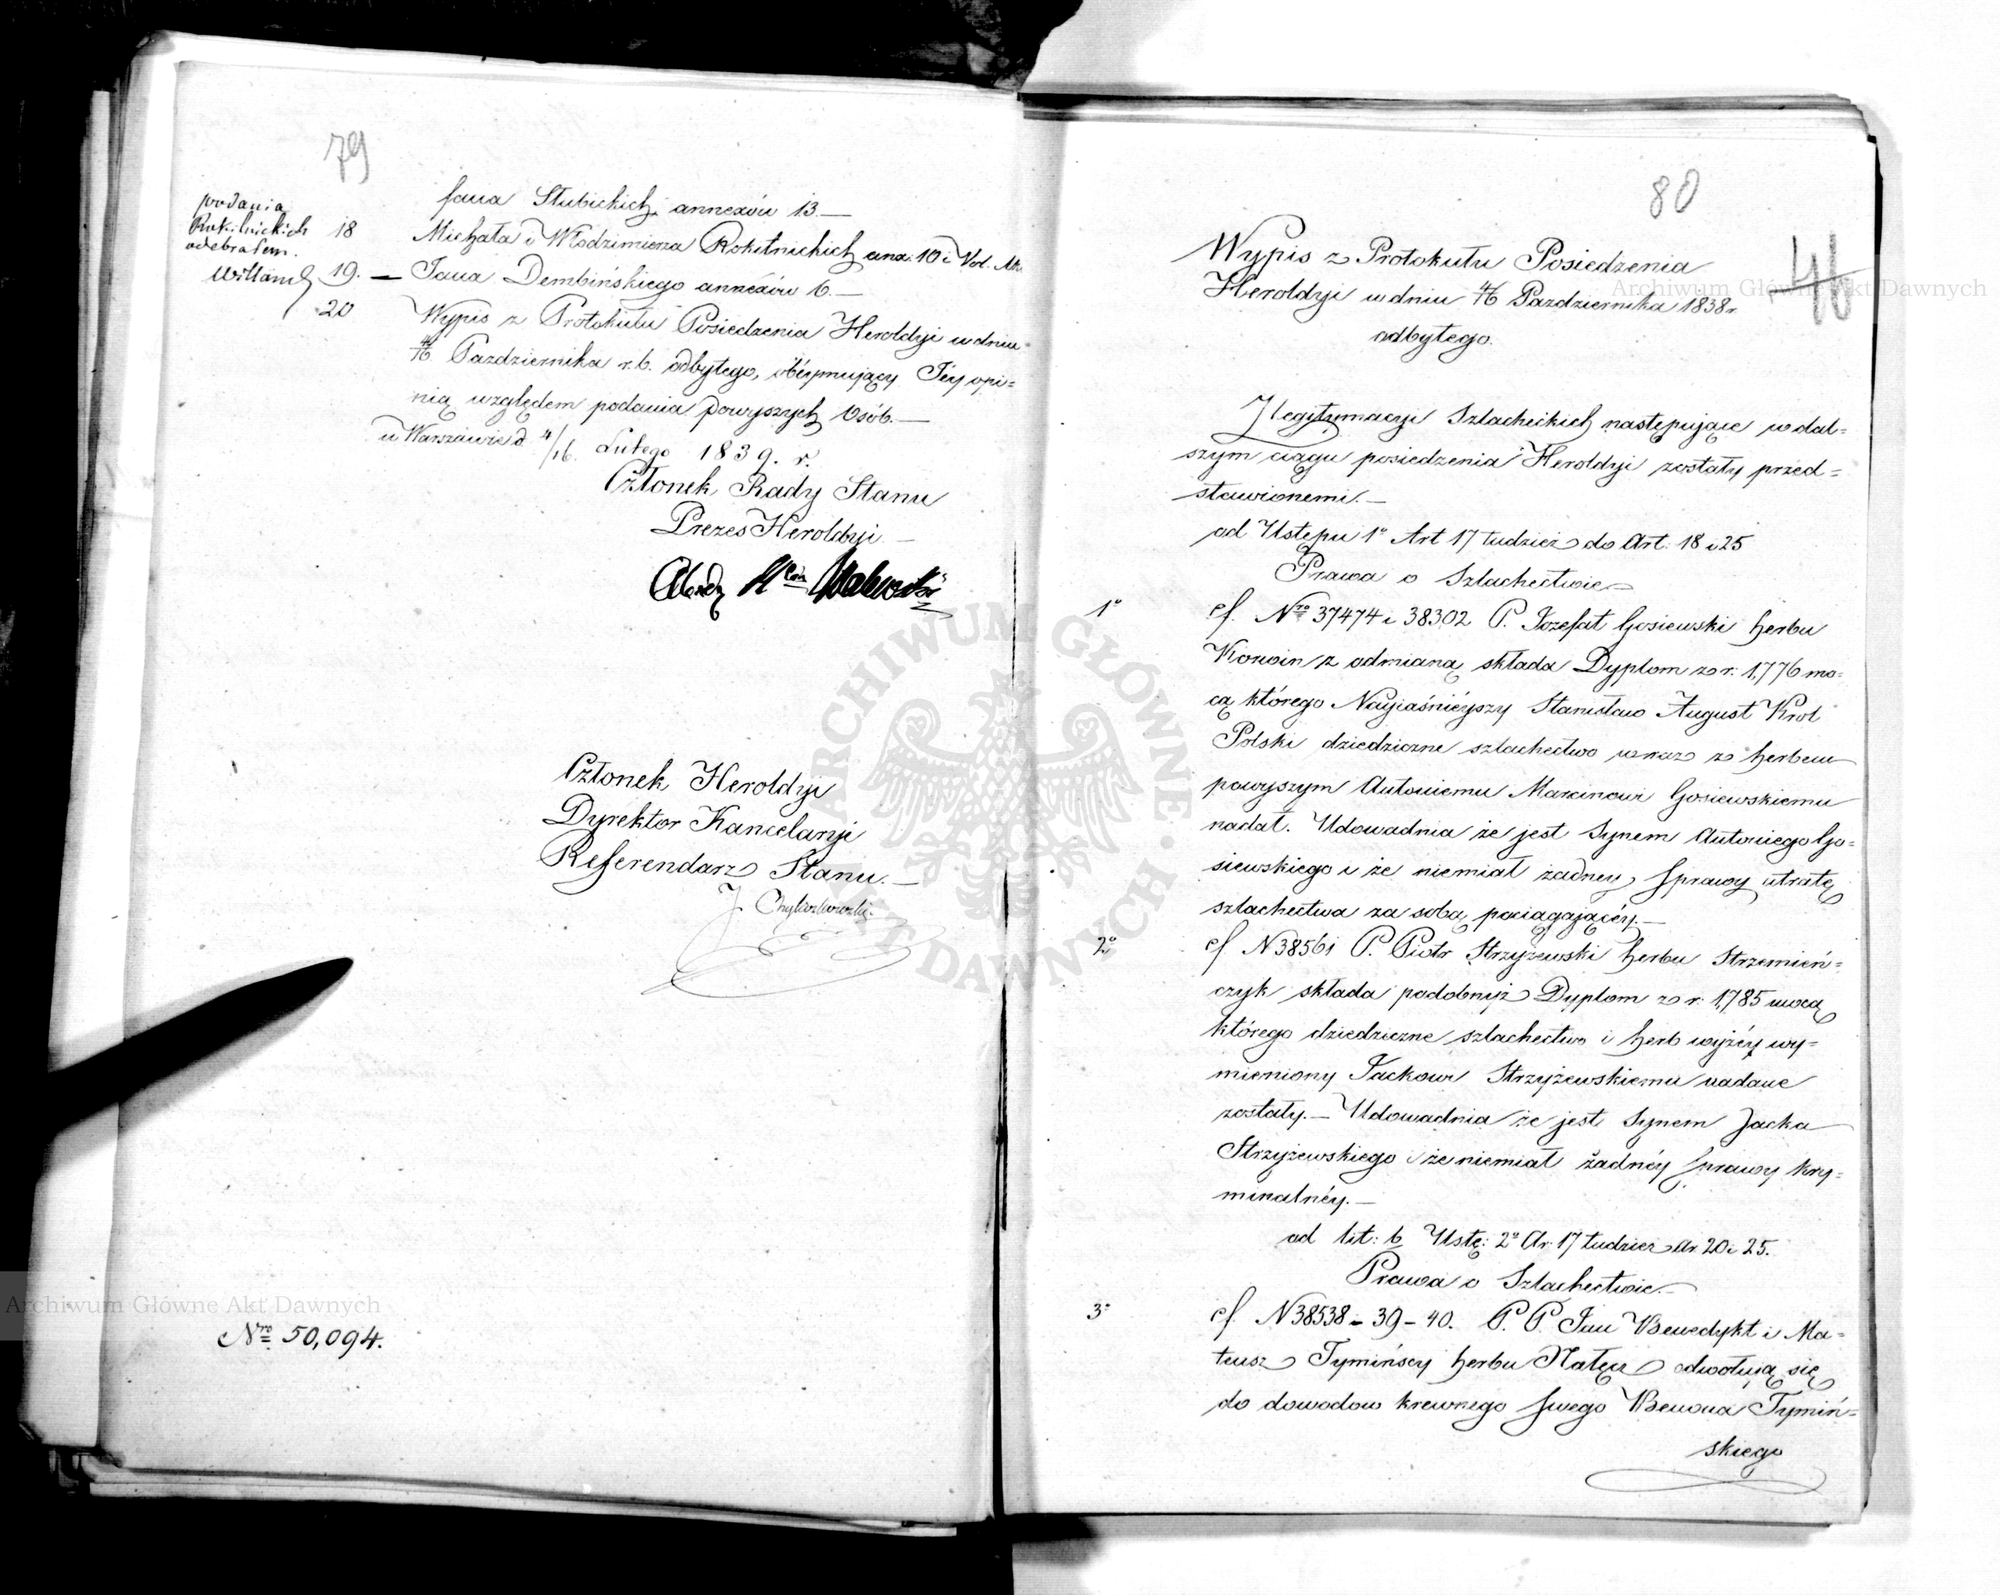 79
podania
Rokitnickich
odebrałem.
fana Słubickich annexów 13.—
18 Michała i Włodzimierza Rokitnickich anx: 10 i Vol. Akt.
19. — Jana Dembińskiego annexów 6.—
20 Wypis z Protokułu Posiedzenia Heroldyi w dniu
4/16 Pazdziernika r. b. odbytego, obéymujący Jéy opi=
nią względem podania powyszych Osób.—
w Warszawie d. 4/16. Lutego 1839. r.
Członek Rady Stanu
Prezes Heroldyi —
Członek Heroldyi
Dyrektor Kancelaryi
Referendarz Stanu.—
Nro 50,094.
80
46
Wypis z Protokułu Posiedzenia
Heroldyi w dniu 4/16 Pazdziernika 1838 r.
odbytego.
Legitymacye Szlacheckich następujące w dal=
szym ciągu posiedzenia Heroldyi zostały przed=
stawionemi.—
ad Ustępu 1° Art 17 tudzież do Art: 18 i 25
Prawa o Szlachectwie—
1° ef. Nro 37474 i 38302 P. Jozefat Gosiewski herbu
Korwin z odmianą składa Dyplom z r: 1,776 mo=
cą którego Nayjaśniéyszy Stanisław August Krol
Polski dziedziczne szlachectwo wraz z herbem
powyszym Antoniemu Marcinowi Gosiewskiemu
nadał. Udowadnia że jest Synem Antoniego Go=
siewskiego i że niemiał żadney Sprawy utratę
szlachectwa za sobą pociągającéy.—
2° ef N 38561 P. Piotr Strzyżewski herbu Strzemień=
czyk składa podobnyż Dyplom z r: 1,785 mocą
którego dziedziczne szlachectwo i herb wyżéy wy=
mieniony Jackowi Strzyżewskiemu nadane
zostały.— Udowadnia że jest Synem Jacka
Strzyżewskiego i że niemiał żadnéy Sprawy kry=
minalnéy.—
ad lit: b Ustę: 2° Ar: 17 tudzież Ar 20 i 25.
Prawa o Szlachectwie.—
3° ef. N 38538 – 39 – 40. P. P. Jan Benedykt i Ma=
teusz Tymińscy herbu Nałęcz odwołują się
do dowodow krewnego Swego Benona Tymiń=
skiego
Archiwum Główne Akt Dawnych
Archiwum Główne Akt Dawnych
ARCHIWUM GŁÓWNE AKT DAWNYCH